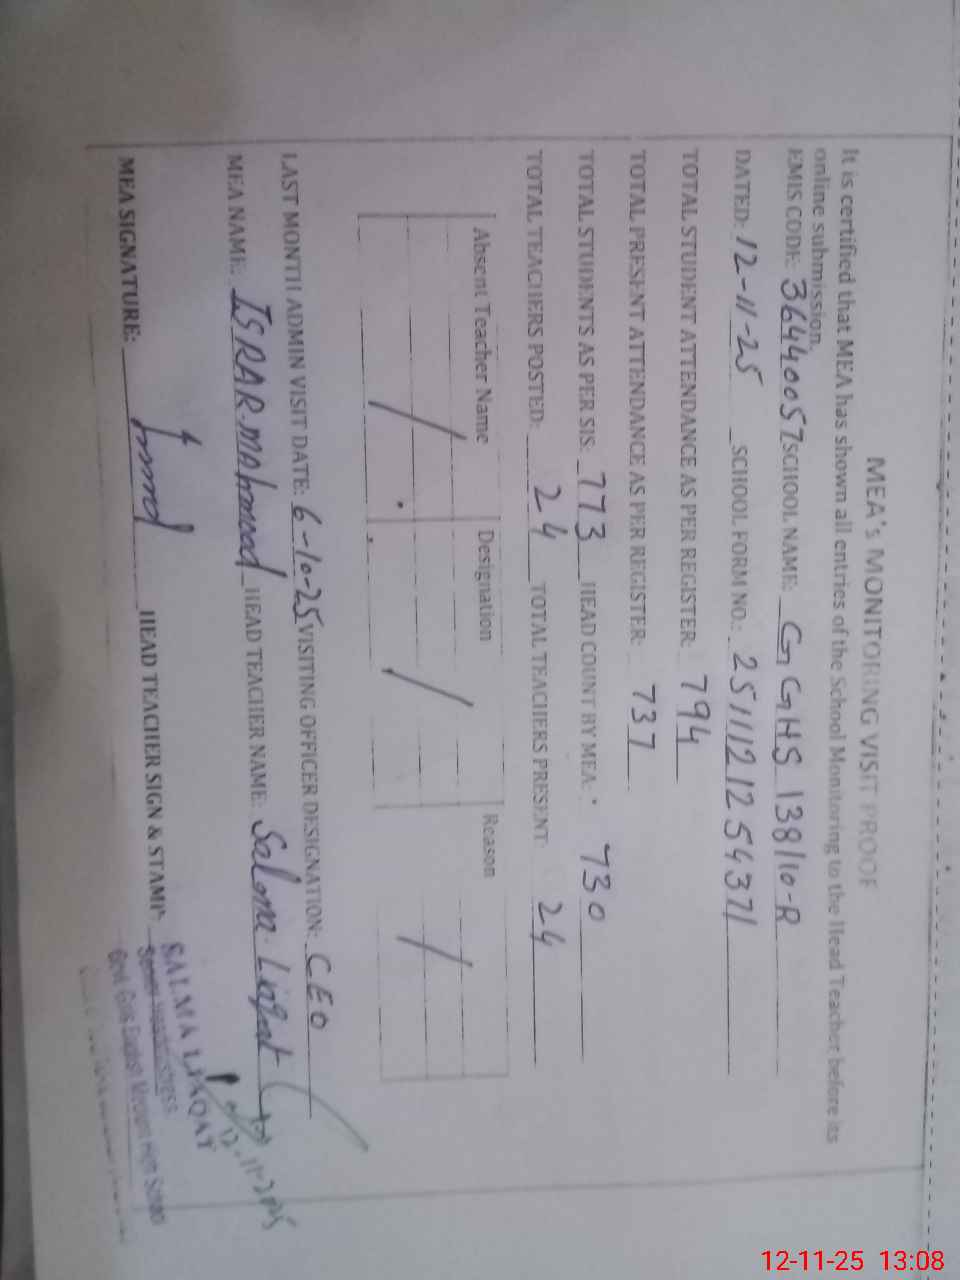 MEA's MONITORING VISIT PROOF
It is certified that MEA has shown all entries of the School Monitoring to the Head Teacher before its
online submission.
EMIS CODE: 36440057 SCHOOL NAME: GGHS 138/10-R
DATED: 12-11-25 SCHOOL FORM NO.: 2511121254371
TOTAL STUDENT ATTENDANCE AS PER REGISTER: 794
TOTAL PRESENT ATTENDANCE AS PER REGISTER: 737
TOTAL STUDENTS AS PER SIS: 773 HEAD COUNT BY MEA: 730
TOTAL TEACHERS POSTED: 24 TOTAL TEACHERS PRESENT: 24
Absent Teacher Name Designation Reason
/ / /
LAST MONTH ADMIN VISIT DATE: 6-10-25 VISITING OFFICER DESIGNATION: CEO
MEA NAME: ISRAR Mahmood HEAD TEACHER NAME: Salma Liaqat
MEA SIGNATURE: HEAD TEACHER SIGN & STAMP:
SALMA LIAQAT
Senior Headmistress
Govt. Girls English Medium High School
12-11-25 13:08